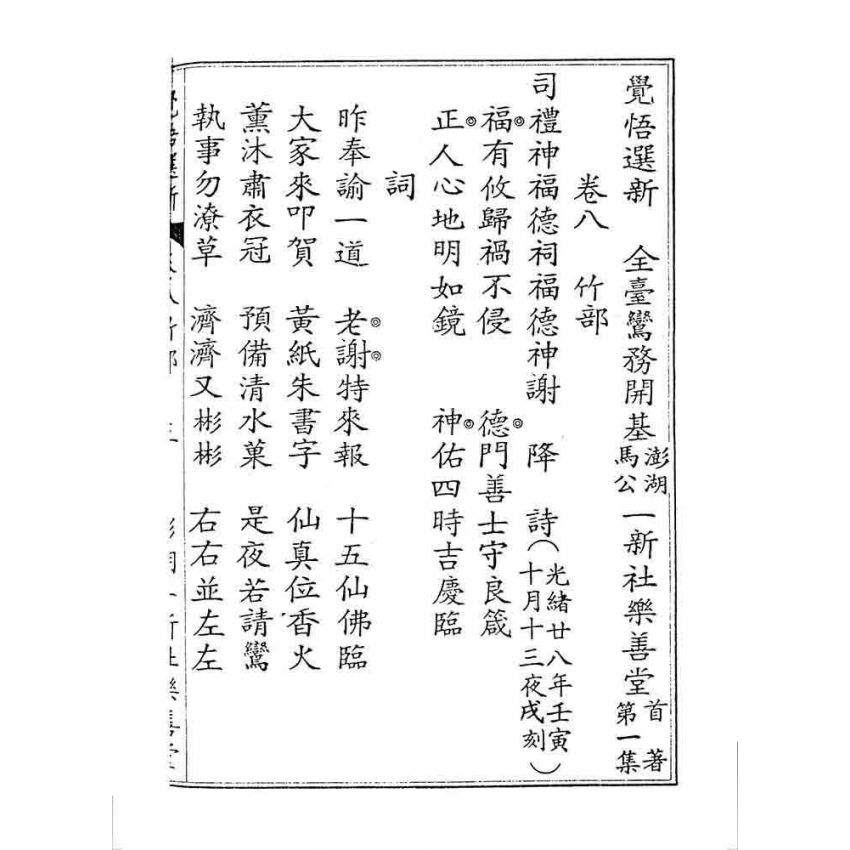 覺悟選新　全臺鸞務開基澎湖馬公一新社樂善堂首著第一集
卷八　竹部
司禮神福德祠福德神謝　降　詩（光緒廿八年壬寅十月十三夜戌刻）
福◎有攸歸禍不侵　德◎門善士守良箴
正◎人心地明如鏡　神◎佑四時吉慶臨
詞
昨奉諭一道　老◎謝◎特來報　十五仙佛臨
大家來叩賀　黃紙朱書字　仙真位香火
薰沐肅衣冠　預備清水菓　是夜若請鸞
執事勿潦草　濟濟又彬彬　右右並左左
覺悟選新　卷八竹部　三　澎湖一新社樂善堂